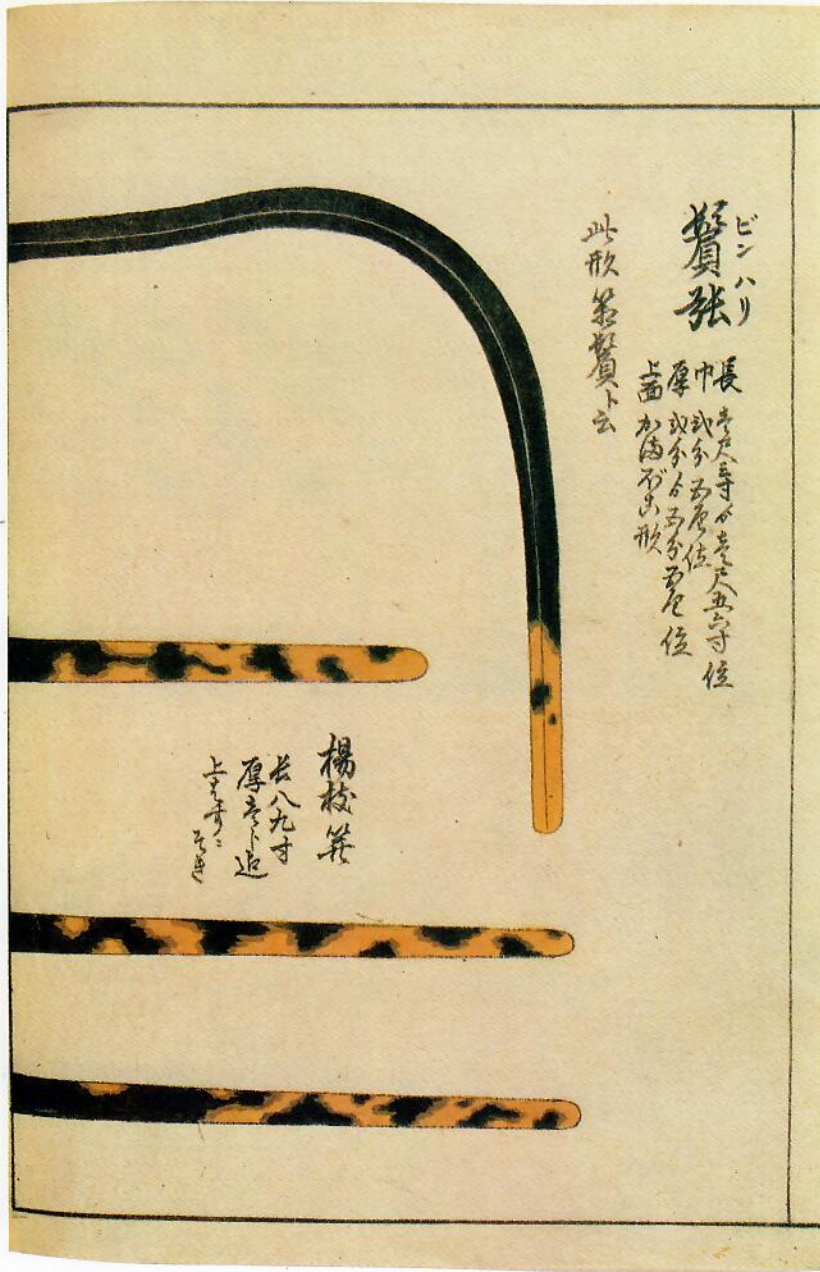 ビンハリ
鬢張
長 壱尺三寸ゟ壱尺五六寸位
巾 弐分五厘位
厚 弐分ゟ五分五厘位
上面かまぼこ形
此形 鬢ト云
楊枝笄
長八九寸
厚壱分迄
そき